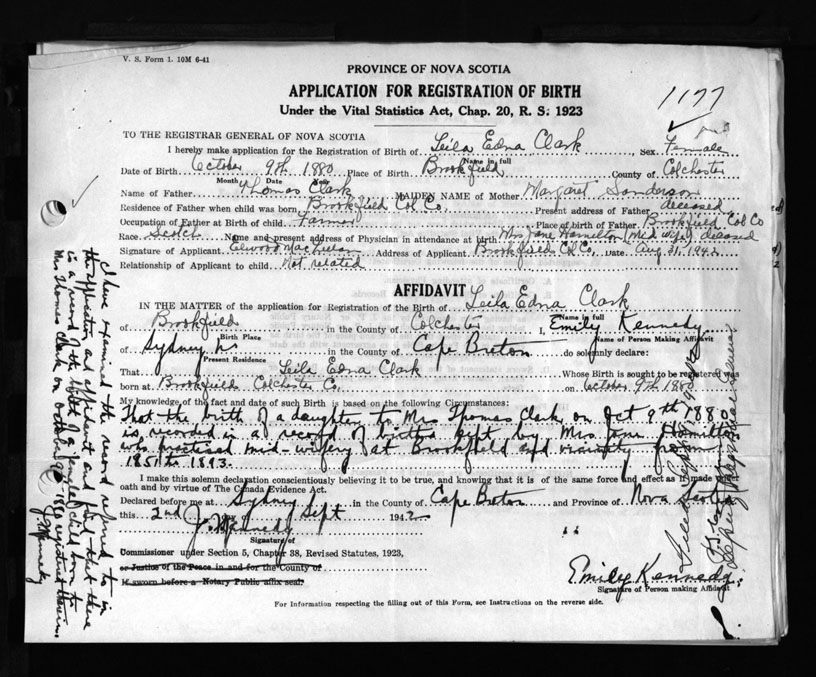 V. S. Form 1. 10M 6-41
PROVINCE OF NOVA SCOTIA
APPLICATION FOR REGISTRATION OF BIRTH
Under the Vital Statistics Act, Chap. 20, R. S. 1923
1177
TO THE REGISTRAR GENERAL OF NOVA SCOTIA
I hereby make application for the Registration of Birth of Leila Edna Clark Sex Female
Name in full
Date of Birth October 9th 1880 Place of Birth Brookfield County of Colchester
Month Date Year
Name of Father Thomas Clark MAIDEN NAME of Mother Margaret Sanderson
Residence of Father when child was born Brookfield Col Co. Present address of Father deceased
Occupation of Father at Birth of child Farmer Place of birth of Father Brookfield Col Co
Race Scotch Name and present address of Physician in attendance at birth Mrs Jane Hamilton (Mid Wife) deceased
Signature of Applicant Elwood Address of Applicant Brookfield Col Co. Date Aug 31, 1942
Relationship of Applicant to child Not related
AFFIDAVIT
IN THE MATTER of the application for Registration of the Birth of Leila Edna Clark
Name in full
of Brookfield in the County of Colchester I, Emily Kennedy
Birth Place Name of Person Making Affidavit
of Sydney NS in the County of Cape Breton do solemnly declare:
Present Residence
That Leila Edna Clark Whose Birth is sought to be registered was
born at Brookfield Colchester Co. on October 9th 1880
My knowledge of the fact and date of such Birth is based on the following Circumstances:
That the birth of a daughter to Mrs Thomas Clark on Oct 9th 1880
is recorded in a record of births kept by Mrs Jane Hamilton
who practised mid-wifery at Brookfield and vicinity from
1851 to 1893.
I make this solemn declaration conscientiously believing it to be true, and knowing that it is of the same force and effect as if made
oath and by virtue of The Canada Evidence Act.
Declared before me at Sydney in the County of Cape Breton and Province of Nova Scotia
this 2nd Sept 1942
J. Kennedy
Signature of
Commissioner under Section 5, Chapter 38, Revised Statutes, 1923,
or Justice of the Peace in and for the County of
If sworn before a Notary Public affix seal.
Emily Kennedy
Signature of Person making Affidavit
For Information respecting the filling out of this Form, see Instructions on the reverse side.
I have examined the record referred to in
the application and find that there
is a record of the birth of a female child born to
Mrs Thomas Clark on October 9th 1880 registered therein.
J. Kennedy